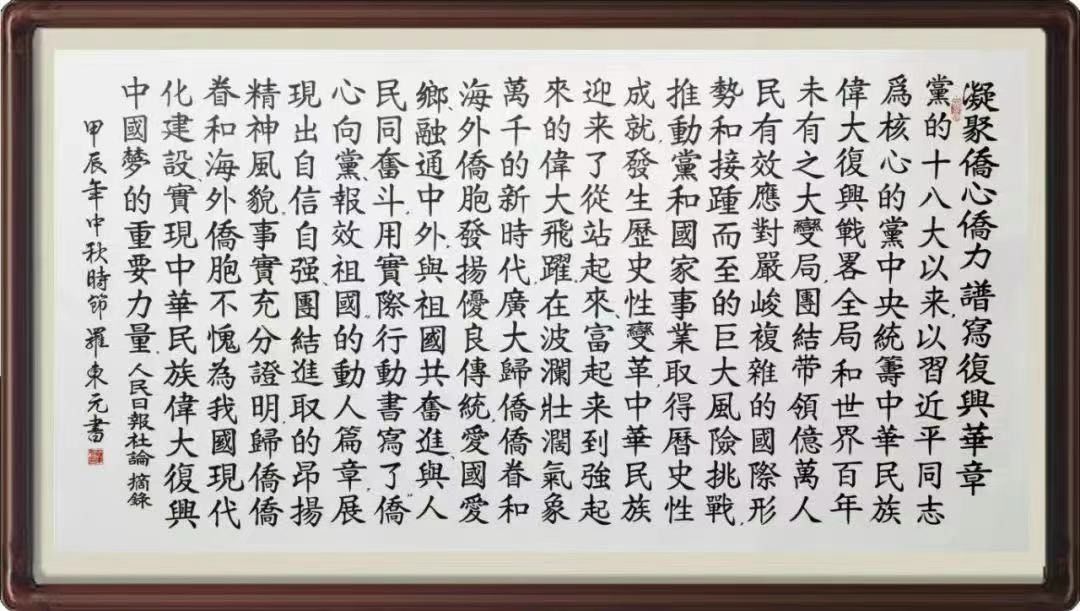 凝聚僑心僑力譜寫復興華章
黨的十八大以来,以習近平同志
爲核心的黨中央統籌中華民族
偉大復興戰畧全局和世界百年
未有之大變局,團結带領億萬人
民有效應對嚴峻複雜的國際形
勢和接踵而至的巨大風險挑戰,
推動黨和國家事業取得曆史性
成就,發生歷史性變革.中華民族
迎来了從站起来,富起来到強起
来的偉大飛躍.在波瀾壯濶氣象
萬千的新時代,廣大歸僑僑眷和
海外僑胞發揚優良傳統,愛國愛
鄉,融通中外,與祖國共奮進,與人
民同奮斗,用實際行動書寫了“僑
心向黨,報效祖國”的動人篇章,展
現出自信自强,團結進取的昂揚
精神風貌.事實充分證明,歸僑僑
眷和海外僑胞不愧為我國現代
化建設,實現中華民族偉大復興
中國夢的重要力量.人民日報社論 摘錄
甲辰年中秋時節羅東元書